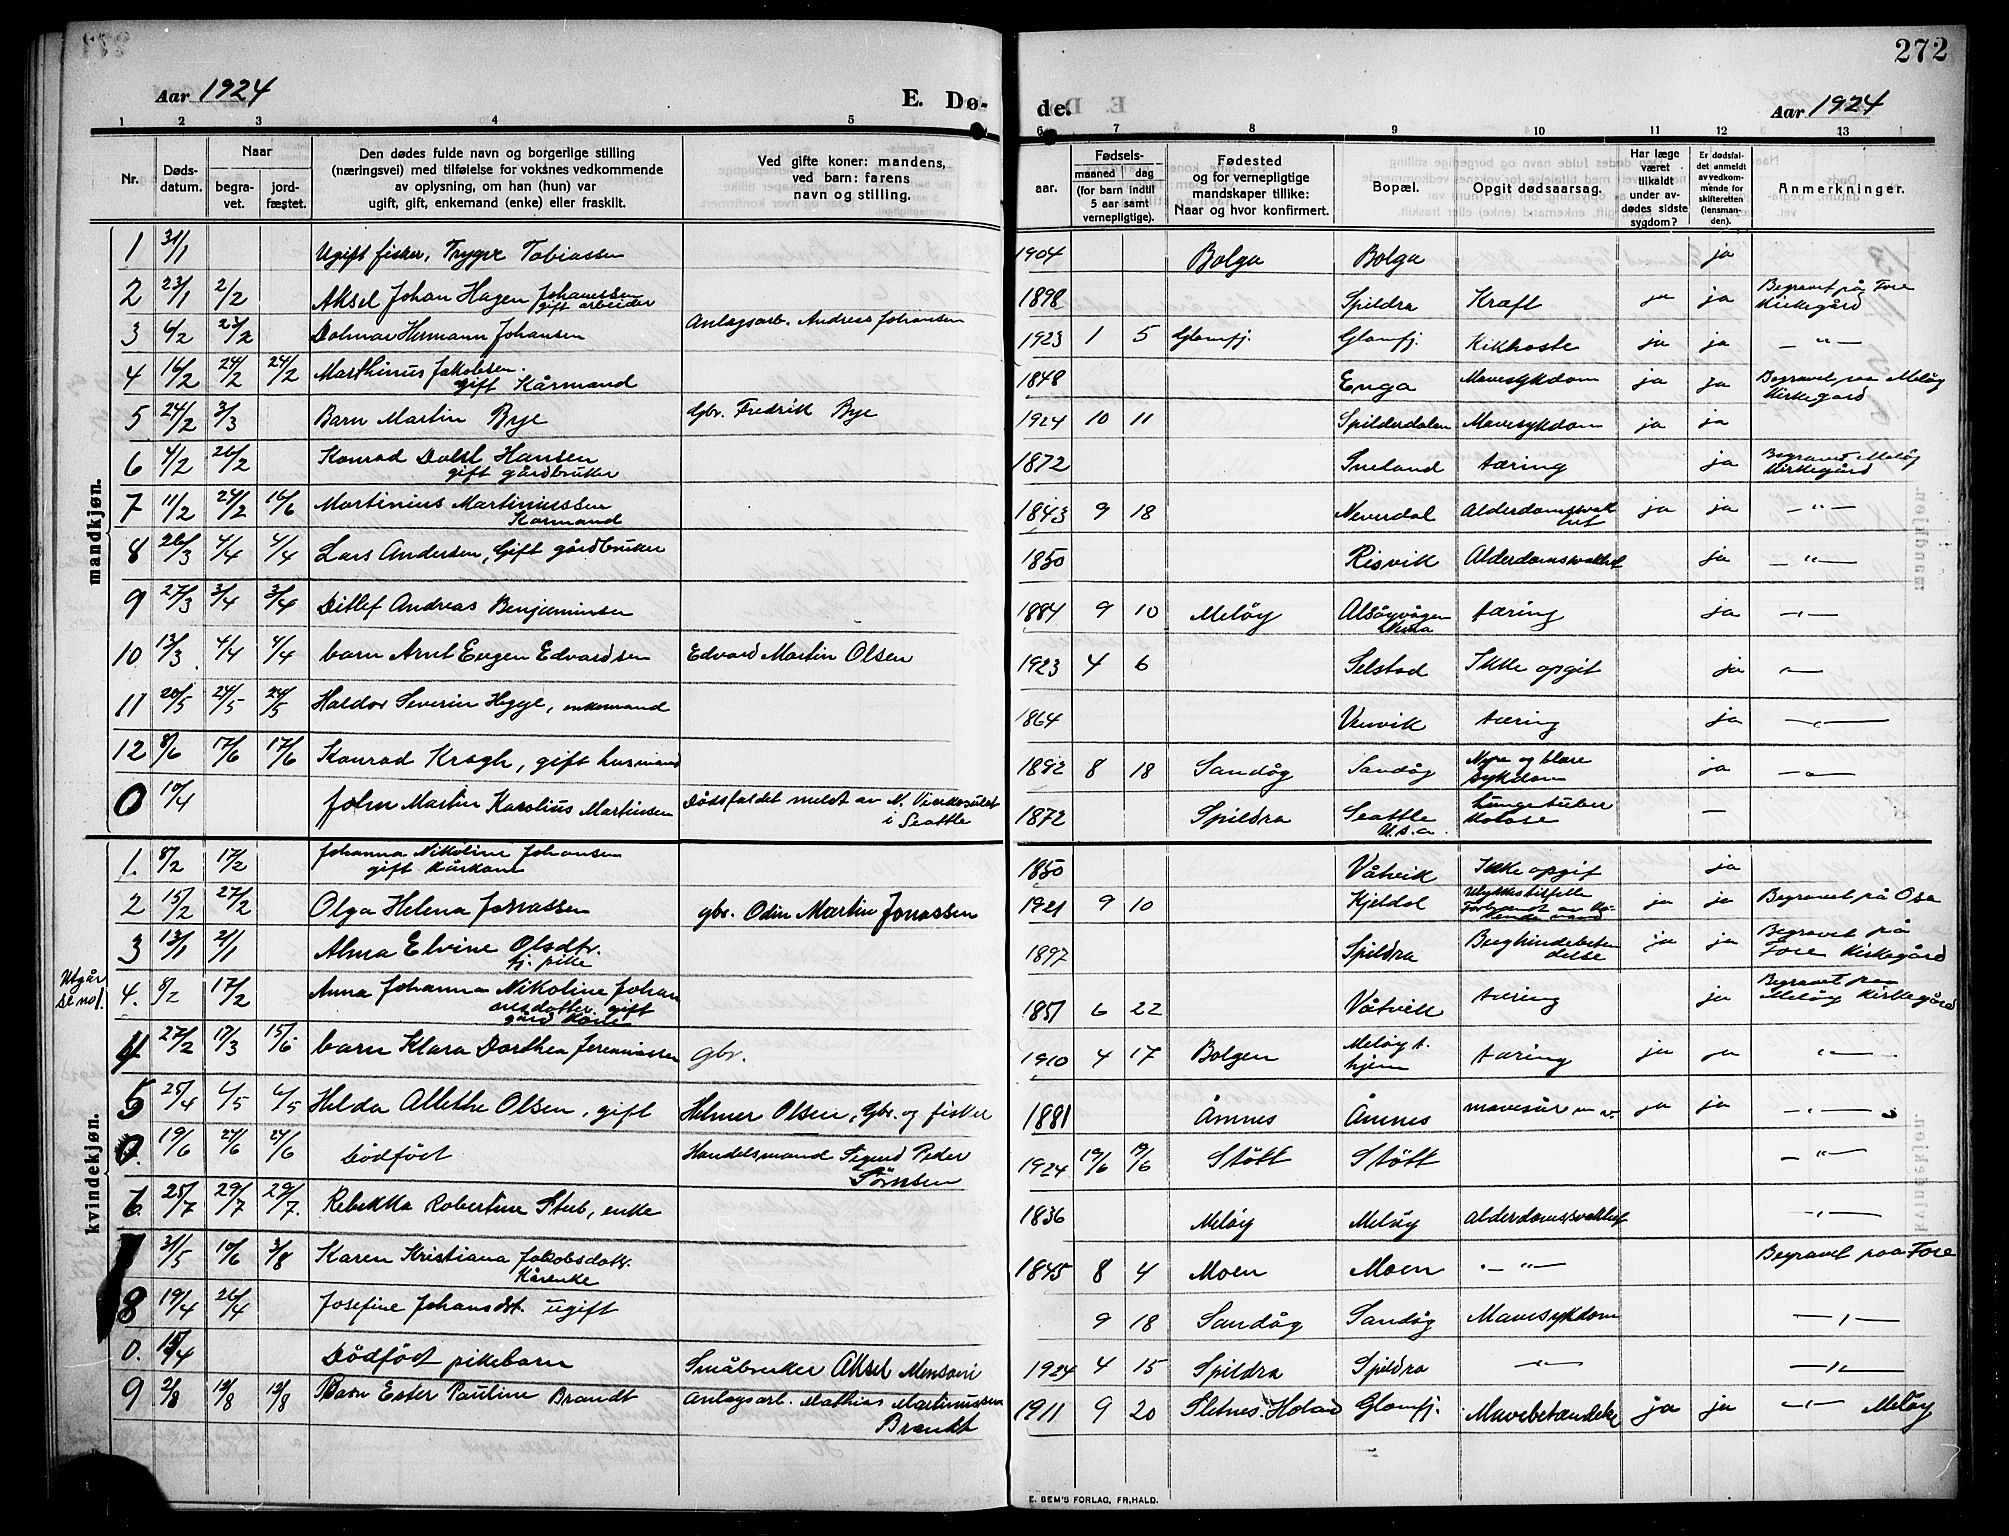 272
Aar 1924
E. Dø-
de.
Aar 1924
1 2 3 4 5
6 7 8 9 10 11 12 13
Nr.
Døds-
datum.
Naar
begra-
vet.
jord-
fæstet.
Den dødes fulde navn og borgerlige stilling
(næringsvei) med tilføielse for voksnes vedkommende
av oplysning, om han (hun) var
ugift, gift, enkemand (enke) eller fraskilt.
Ved gifte koner: mandens,
ved barn: farens
navn og stilling.
Fødsels-
aar.
maaned dag
(for barn indtil
5 aar samt
vernepligtige).
Fødested
og for vernepligtige
mandskaper tillike:
Naar og hvor konfirmert.
Bopæl.
Opgit dødsaarsag.
Har læge
været
tilkaldt
under av-
dødes sidste
sygdom?
Er dødsfal-
det anmeldt
av vedkom-
mende for
skifteretten
(lensman-
den).
Anmerkninger.
mandkjøn.
1 31/1 Ugift fisker, Trygve Tobiassen 1904 Bolga Bolga ja
2 23/1 2/2 Aksel Johan Hagen Johanssen
gift arbeider 1898 Spildra Kræft ja ja Begravet på Fore
Kirkegård
3 6/2 23/2 Dolmar Hermann Johansen Anlagsarb. Andreas Johansen 1923 1 5 Glomfj. Glomfj. Kikhoste ja ja — " —
4 16/2 24/2 24/2 Marthinus Jakobsen.
gift Kårmand 1848 Enga Mavesykdom ja ja Begravet paa Meløy
Kirkegård
5 24/2 3/3 Barn Martin Bye Gbr. Fredrik Bye 1924 10 11 Spilderdalen Mavesykdom ja ja
6 4/2 26/2 Konrad Dalsl Hansen
gift gårdbruker 1872 Sneland tæring ja Begraved Meløy
Kirkegård
7 11/2 24/2 16/6 Martinius Martinussen
Kårmand 1843 9 18 Neverdal Alderdomssvak
het ja ja — " —
8 26/3 4/4 4/4 Lars Andersen, Gift gårdbruker 1850 Risvik Alderdomssvakhet ja — " —
9 27/3 3/4 3/4 Ditlef Andreas Benjaminsen 1884 9 10 Meløy Alsøyvågen
tæring ja — " —
10 13/3 4/4 4/4 barn Arnt Eugen Edvardsen Edvard Martin Olsen 1923 4 6 Selstad Ikke opgit ja — " —
11 20/5 24/5 24/5 Haldor Severin Hegge, enkemand 1864 Venvik tæring ja — " —
12 8/6 17/6 17/6 Konrad Kragh, gift husmand 1892 8 18 Sandøy Sandøy Nyre og blære
sykdom ja — " —
0 10/4 John Martin Karolius Martinsen Dødsfaldet meldt av N. Vicekonsulat
i Seattle 1872 Spildra Seattle
U.S.a. Lungetuber
kolose —
kvindekjøn.
1. 8/2 17/2 Johanna Nikoline Johansen
gift kårkone 1850 Våtvik Ikke opgit ja
2 15/2 27/2 Olga Helena Jonassen gbr. Odin Martin Jonassen 1921 9 10 Kjeldal Ulykkestilfelle
ja ja Begravet på Ose
3 13/1 21/1 Alma Elvine Olsdtr.
tj. pike 1897 Spildra ja ja Begravet på
Fore Kirkegård
Utgår
se no 1.
4. 8/2 17/2 Anna Johanna Nikoline Johan
nesdotter. gift
gård kone 1851 6 22 Våtvik tæring ja Begravet paa
Meløy Kirkegård
4 27/2 17/3 15/6 barn Klara Dorthea Jeremiassen gbr. 1910 4 17 Bolgen Meløy a.
hjem tæring ja ja — " —
5 25/4 4/5 4/5 Helda Allethe Olsen, gift Helmer Olsen, Gbr. og fisker 1881 Åmnes Åmnes mavesår ja ja — " —
0. 19/6 27/6 27/6 Dödfödt Handelsmand Sigurd Peder
Sörnsen 1924 19/6 19/6 Stött Stött — " —
6. 25/7 29/7 29/7. Rebekka Robertine Steb, enke 1836 Meløy Meløy Alderdomssvakhet — " —
7 31/5 10/6 3/8 Karen Kristiana Jakobsdotr.
Kårenke 1845 8 4 Moen Moen — " — Begravet paa Fore
8 19/4 26/4 Josefine Johansdt. ugift 9 18 Sandøy Sandøy Mavesykdom — " —
0. 15/4 Dödfödt pikebarn Småbruker Aksel Monsen 1924 4 15 Spildra Spildra — " — — " —
9 2/8 13/8 13/8 Barn Ester Pauline Brandt Anlagsarb. Mathias Martinussen
Brandt 1911 9 20 Sletnes. Glomfj. Mavebetændelse ja ja — " — Meløy
E. SEM'S FORLAG, FR,HALD.